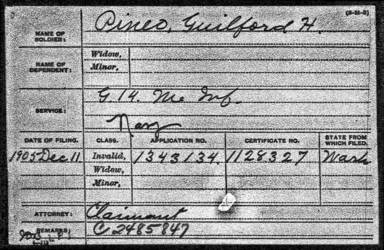 (3-31-3)
NAME OF SOLDIER: Pineo, Guilford H.
NAME OF DEPENDENT: Widow,
Minor,
SERVICE: G. 14. Me Inf.
Navy
DATE OF FILING. CLASS. APPLICATION NO. CERTIFICATE NO. STATE FROM WHICH FILED.
1905 Dec 11 Invalid, 1343134. 1128327 Wash
Widow,
Minor,
ATTORNEY: Claimant
REMARKS: C 2485847